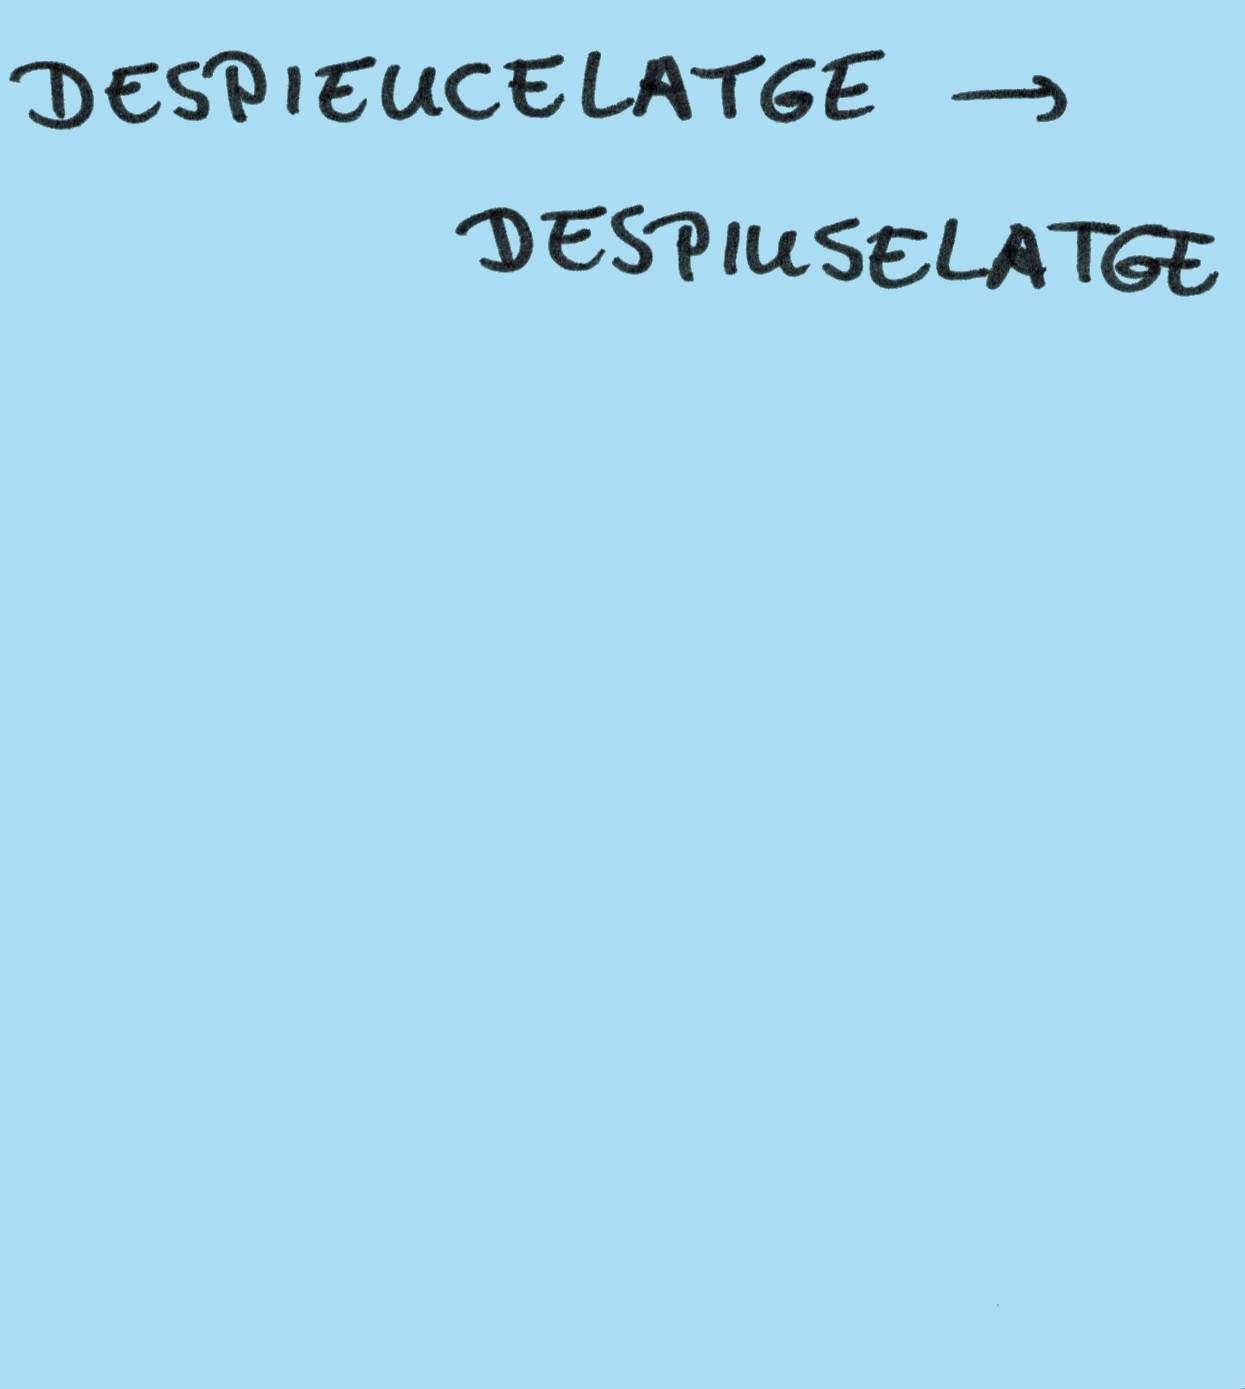 DESPIEUCELATGE →
DESPIUSELATGE